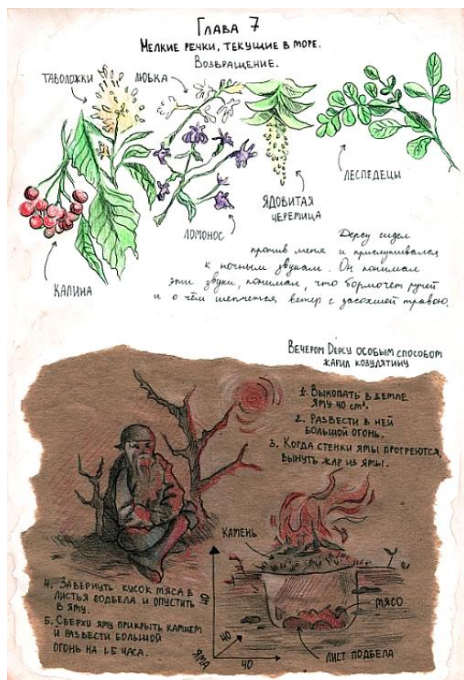 Глава 7
Мелкие речки, текущие в море.
Возвращение.
Таволожки
Любка
Леспедецы
Ядовитая
черемица
Ломонос
Калина
Дерсу сидел
против меня и прислушивался
к ночным звукам. Он понимал
эти звуки, понимал, что бормочет ручей
и о чём шепчется ветер с засохшей травою.
Вечером Дерсу особым способом
жарил козулятину
1. Выкопать в земле
яму 40 см³.
2. Развести в ней
большой огонь.
3. Когда стенки ямы прогреются,
вынуть жар из ямы.
Камень
4. Завернуть кусок мяса в
листья подбела и опустить
в яму.
5. Сверху яму прикрыть камнем
и развести большой
огонь на 1.5 часа.
40
40
40
Яма
Мясо
Лист подбела